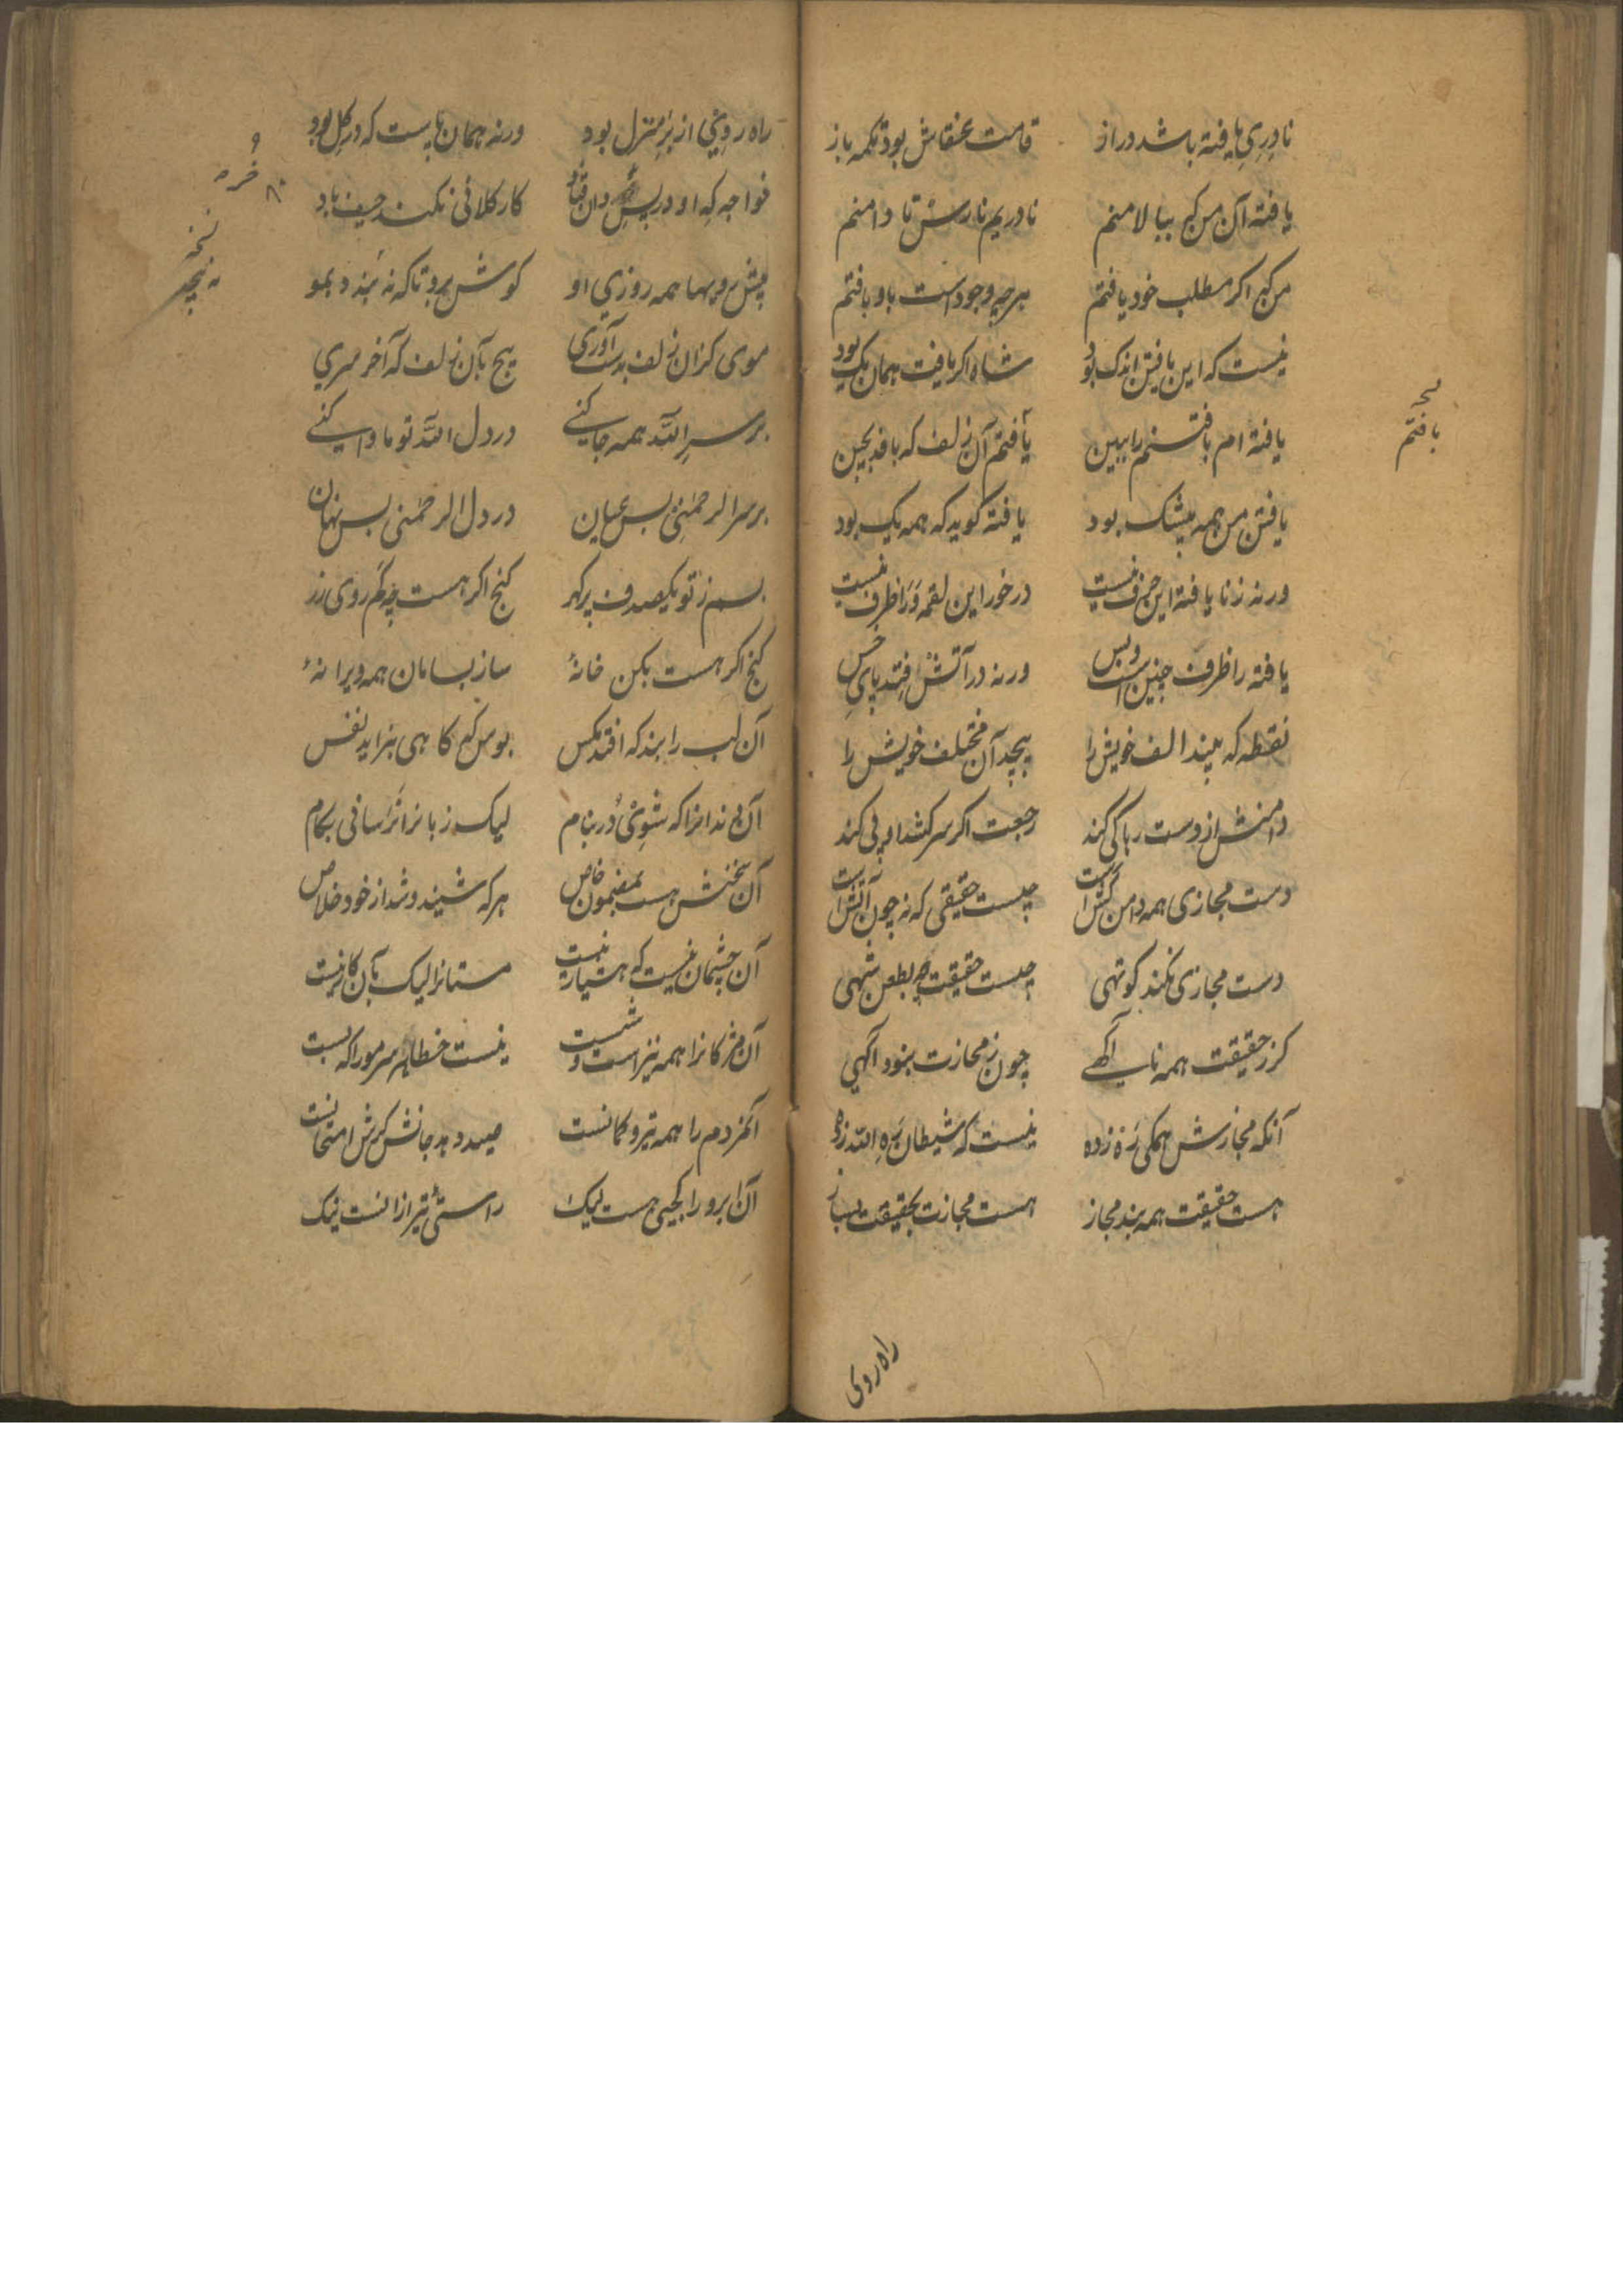 نادری یافته باشد دراز قامت عنقاش بود تکمه باز
یافته آن من کج ببالا منم نادریم نارسش تا دامنم
من کج اگر مطلب خود یافتم هرچه وجود است باو بافتم
نیست که این یافتن اندک بود شاه اکر یافت همان یک بود
یافته ام یافتنم را ببین یافتم آن زلف که بافد بچین
یافتن من همه بیشک بود یافته کوید که همه یک بود
ورنه زنا یافته این حرف نیست در خور این لقمه ورا ظرف نیست
یافته را ظرف چنین است و بس ورنه در آتش فتد پای خس
نقطه که بیند الف خویش را پیچد آن مختلف خویش را
دامنش از دست رها کی کند رجعت اکر سر کشد او پی کند
دست مجازی همه دامن کش است چیست حقیقی که نه چون آتش است
دست مجازی نکند کوتهی چیست حقیقت بطعن تهی
کز حقیقت همه نا آکهی چون ز مجازت بنود آکهی
آنکه مجازش همکی ره زده نیست که شیطان ره الله زده
هست حقیقت همه بند مجاز هست مجازت بحقیقت بساز
نسخه
بافتم
راه روی
راه روی از بر منزل بود ورنه همان پاست که در کل بود
خواجه که او در پس کار کلائی نکند حیف باد
همه روزی او کوش برو تاکه نه بمو
موی کزان زلف بدست آوری پیچ بآن زلف که آخر سری
بر سر الله همه جا کنی در دل الله تو ماوا کنی
بر سر الرحمنی بس عیان در دل الرحمنی بس نهان
بسم ز تو یکصدف پر کهر کنج اکر هست چه کم روی زر
کنج اکر هست بکن خانهٔ ساز بسامان همه ویرانهٔ
آن لب را بند که افتد مکس بوس که کاهی بفزاید نفس
آن دندانرا که شوی در بنام لیک زبانرا نرسانی بکام
آن سخنش هست بمضمون خاص هر که شنید و شد از خود خلاص
آن چشمان نیست که هشیار نیست مستانرا لیک بآن کار نیست
آن مژکانرا همه تیر است و شست نیست خطا هر سر مو را که بست
آنمردم را همه تیر و کمانست میدهد جانش کرش امتحانست
آن ابرو را کجی هست لیک راستی تیر ازانست نیک
نسخه